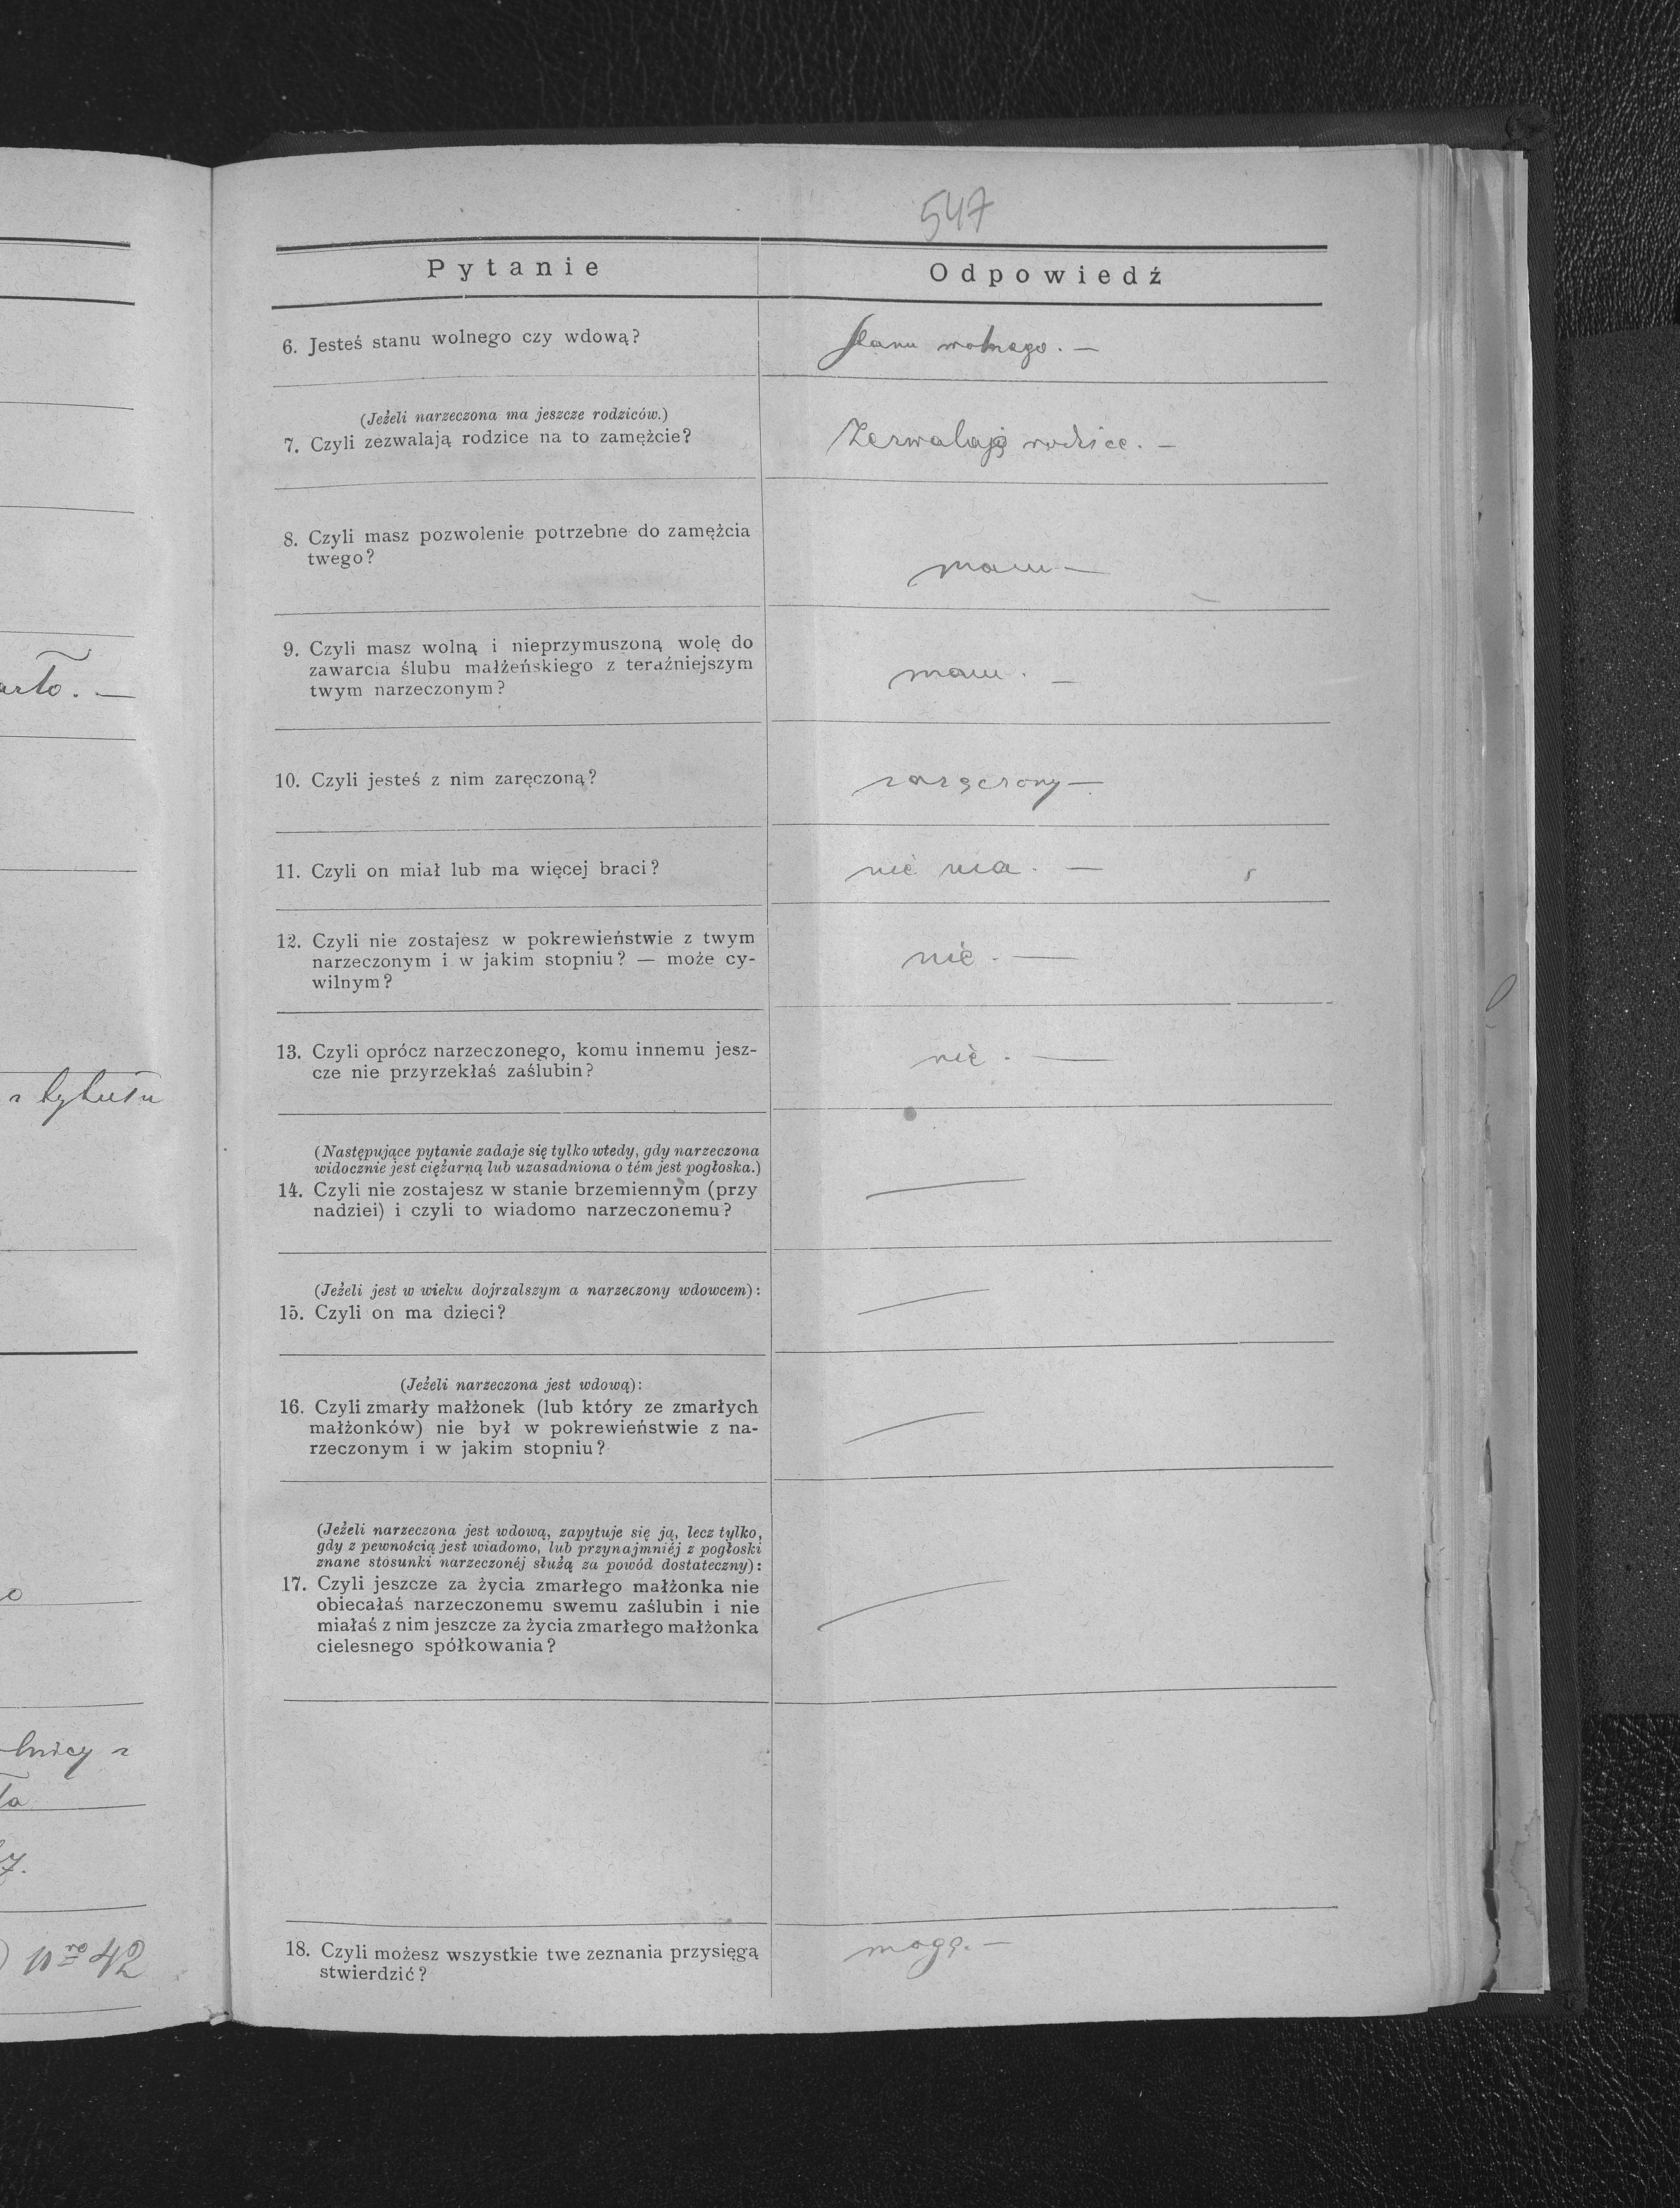 547
Pytanie
Odpowiedź
6. Jesteś stanu wolnego czy wdową?
stanu wolnego. —
(Jeżeli narzeczona ma jeszcze rodziców.)
7. Czyli zezwalają rodzice na to zamężcie?
Zezwalają rodzice. —
8. Czyli masz pozwolenie potrzebne do zamężcia
twego?
mam —
9. Czyli masz wolną i nieprzymuszoną wolę do
zawarcia ślubu małżeńskiego z teraźniejszym
twym narzeczonym?
mam. —
10. Czyli jesteś z nim zaręczoną?
zaręczony —
11. Czyli on miał lub ma więcej braci?
nie ma. —
12. Czyli nie zostajesz w pokrewieństwie z twym
narzeczonym i w jakim stopniu? — może cy-
wilnym?
nie. —
13. Czyli oprócz narzeczonego, komu innemu jesz-
cze nie przyrzekłaś zaślubin?
nie. —
(Następujące pytanie zadaje się tylko wtedy, gdy narzeczona
widocznie jest ciężarną lub uzasadniona o tém jest pogłoska.)
14. Czyli nie zostajesz w stanie brzemiennym (przy
nadziei) i czyli to wiadomo narzeczonemu?
—
(Jeżeli jest w wieku dojrzalszym a narzeczony wdowcem):
15. Czyli on ma dzieci?
—
(Jeżeli narzeczona jest wdową):
16. Czyli zmarły małżonek (lub który ze zmarłych
małżonków) nie był w pokrewieństwie z na-
rzeczonym i w jakim stopniu?
—
(Jeżeli narzeczona jest wdową, zapytuje się ją, lecz tylko,
gdy z pewnością jest wiadomo, lub przynajmniéj z pogłoski
znane stosunki narzeczonéj służą za powód dostateczny):
17. Czyli jeszcze za życia zmarłego małżonka nie
obiecałaś narzeczonemu swemu zaślubin i nie
miałaś z nim jeszcze za życia zmarłego małżonka
cielesnego spółkowania?
—
18. Czyli możesz wszystkie twe zeznania przysięgą
stwierdzić?
mogę. —